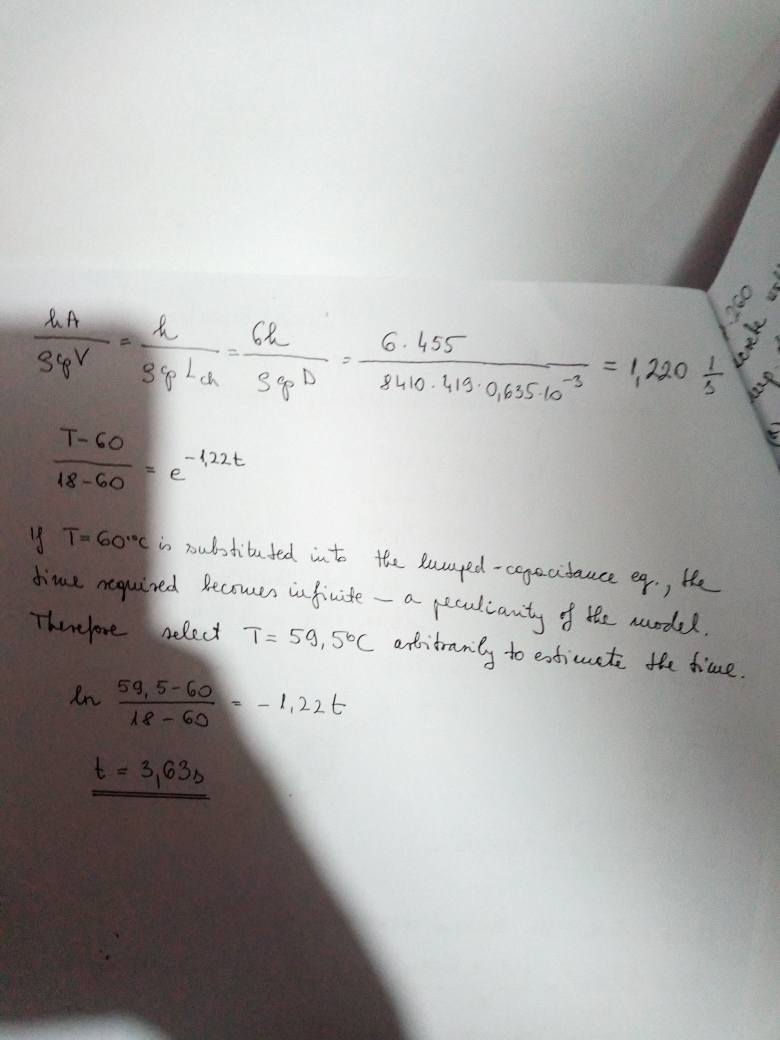 hA / ρcpV = h / ρcp Lch = 6h / ρcp D = 6·455 / 8410·419·0,635·10⁻³ = 1,220 1/s
T-60 / 18-60 = e^-1,22t
If T=60°C is substituted into the lumped-capacitance eq., the
time required becomes infinite – a peculiarity of the model.
Therefore select T= 59,5°C arbitrarily to estimate the time.
ln 59,5-60 / 18-60 = -1,22t
t = 3,63s
-260